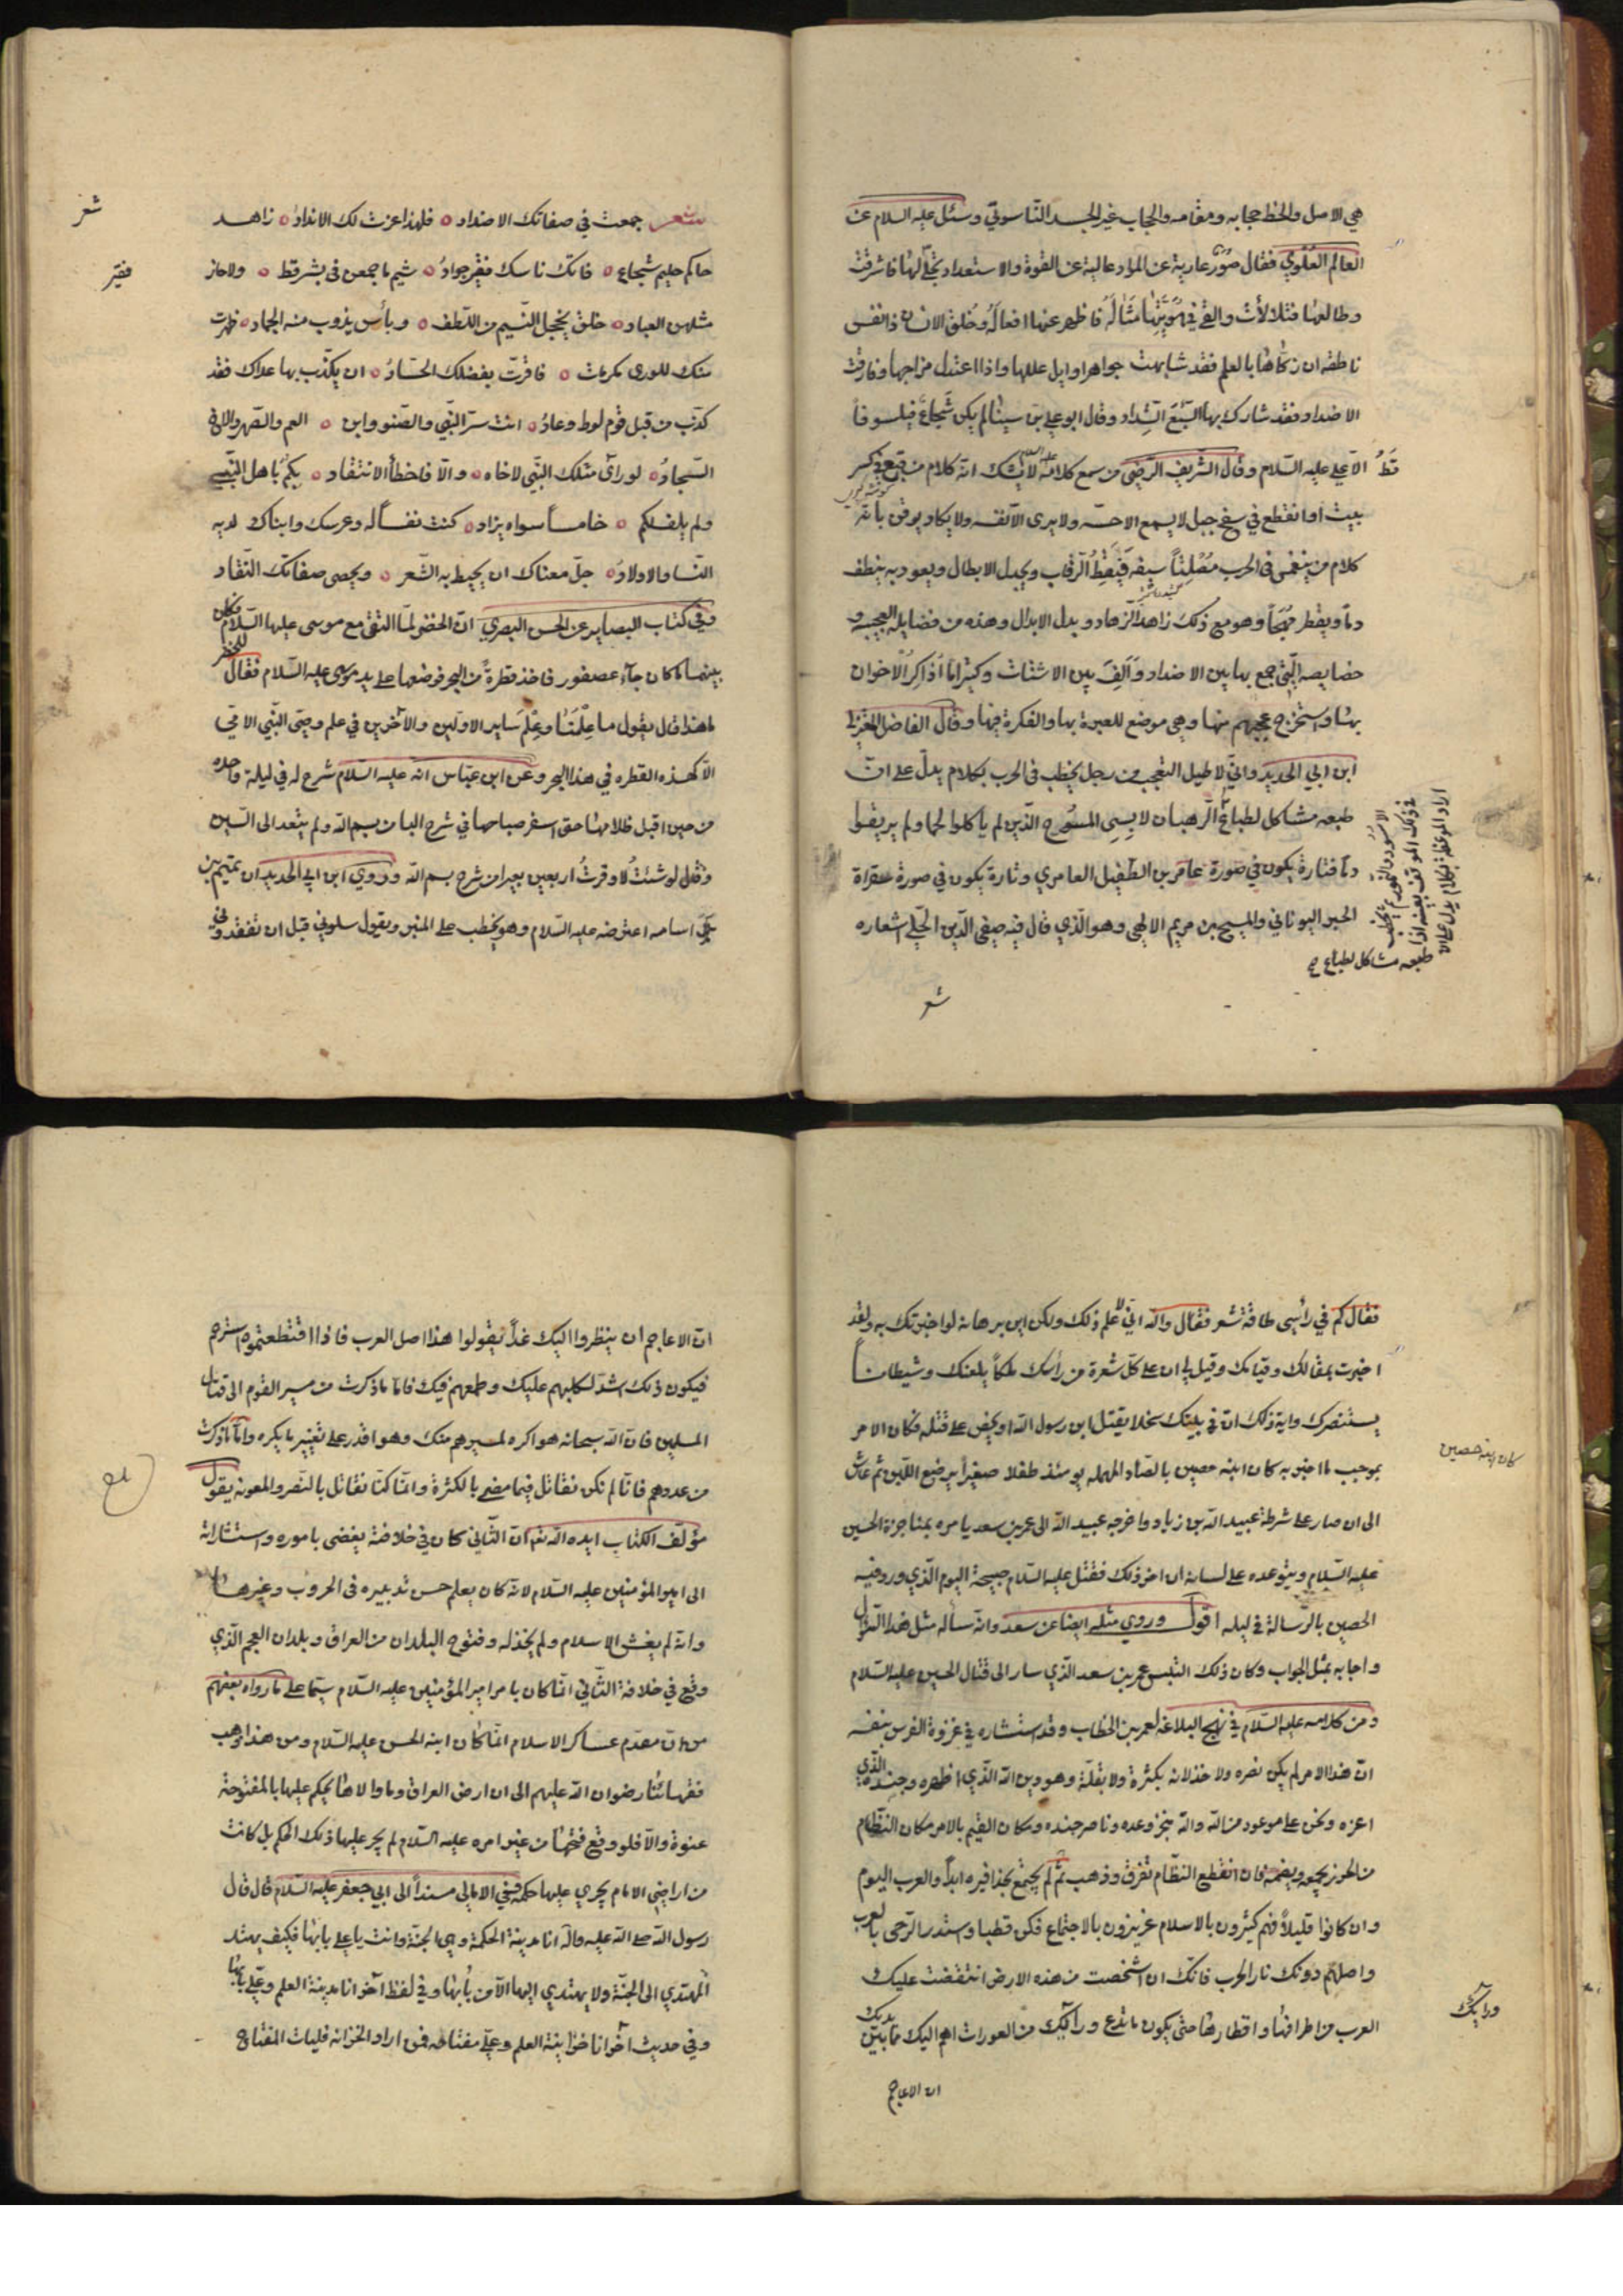 هي الاصل والخط حجابه ومقامه والحجاب غير الجسد الناسوتي وسئل عليه السلام عن
العالم العلوي فقال صُوَر عارية عن المواد عالية عن القوة والاستعداد تجلّى لها فاشرقت
وطالعها فتلألأت والقى في هُوِيَّتِها مَثَالَهُ فاظهر عنها افعالَهُ وخُلق الانسان ذا نفس
ناطقه ان زكّاها بالعلم فقد شابهت جواهر اوايل عللها واذا اعتدل مزاجها وفارقت
الاضداد فقد شارك بها السَّبْعَ الشِّداد وقال ابو علي بن سينا لم يكن شجاعٌ فيلسوفاً
قَطُّ الّا علي عليه السلام وقال الشريف الرضي من سمع كلامه عليه السلام لا يشك انه كلام من قبع في كسر
بيت او انقطع في سفح جبل لا يسمع الا حسّه ولا يرى الا نفسه ولا يكاد يوقن بانّه
كلام من ينغمس في الحرب مُصْلِتاً سيفه فَيَقِطُّ الرّقاب ويجدل الابطال ويعود به ينطف
دماً ويقطر مُهَجاً وهو مع ذلك زاهد الزهاد وبدل الابدال وهذه من فضايله العجيبه و
خصايصه الّتي جمع بها بين الاضداد وَاَلَّفَ بين الاشتات وكثيراً ما اُذَاكِرُ الاخوان
بها واستخرج عجبهم منها وهي موضع للعبرة بها والفكرة فيها وقال الفاضل
ابن ابي الحديد وانّي لاطيل التعجب من رجل يخطب في الحرب بكلام يدلّ على انّ
طبعه مشاكل لطبايع الرهبان لابسي المسُوح الّذين لم ياكلوا لحما ولم يريقوا
دماً فتارة يكون في صورة عامر بن الطفيل العامري وتارة يكون في صورة سقراط
الحبر اليوناني والمسيح بن مريم الالهي وهو الّذي قال فيه صفي الدين الحلّي اشعاره
الاسود والنمور ثم يخطب
في ذلك الموقف بعينه اذا
اراد الموعظة بكلام يدل على ان
طبعه مشاكل لطبايع صح
شعر
شعر جمعت في صفاتك الاضداد فلهذا عزت لك الانداد زاهد
حاكم حليم شجاع فاتك ناسك فقير جوادُ شيم ما جمعن في بشر قط ولا حاز
مثلهن العباد خلق يخجل النسيم من اللّطف وبأس يذوب منه الجماد ظهرت
منك للورى مكرمات فاقرّت بفضلك الحسّادُ ان يكذّب بها عداك فقد
كذّب من قبل قوم لوط وعادُ انت سرّ النبّي والصّنو وابن العم والصهر والاخ
السّجادُ لو رأى مثلك النبّي لاخاه والّا فاخطأ الانتقاد بكم باهل النبّي
ولم يلف لكم خامساً سواه يزاد كنت نفساً له وعرسك وابناك لديه
النسا والاولادُ جلّ معناك ان يحيط به الشّعر ويحصى صفاتك النقّاد
شعر
فقير
وفي كتاب البصاير عن الحسن البصري انّ الخضر لمّا التقى مع موسى عليهما السّلام فكان
بينهما ما كان جآء عصفور فاخذ قطرةً من البحر فوضعها على يد موسى عليه السّلام فقال للخضر
ما هذا قال يقول ما عِلْمُنَا وعِلْمُ ساير الاوّلين والآخرين في علم وصّى النبّي الامّي
الّا كهذه القطره في هذا البحر وعن ابن عبّاس انه عليه السّلام شرح له في ليلة واحده
من حين اقبل ظلامها حتى اسفر صباحها في شرح البا من بسم الله ولم يتعد الى السّين
وقال لو شئتُ لاوقرتُ اربعين بعيرا من شرح بسم الله وروي ابن ابي الحديد ان تميم بن
اسامه اعترضه عليه السّلام وهو يخطب على المنبر ويقول سلوني قبل ان تفقدوني
فقال كم في رأسي طاقة شعر فقال والله انّي لاعلم ذلك ولكن اين برهانه لو اخبرتك به ولقد
اخبرت بمقالك وقيامك وقيل لي ان على كلّ شعرة من رأسك ملكاً يلعنك وشيطاناً
يستنصرك واية ذلك انّ في بيتك سخلا يقتل ابن رسول الله او يحض على قتله فكان الامر
بموجب ما اخبر به كان ابنه حصين بالصّاد المهمله يومئذ طفلا صغيراً يرضع اللبن ثم عاش
كان ابنه حصين
الى ان صار على شرطة عبيد الله بن زياد واخرجه عبيد الله الى عمر بن سعد يامره بمناجزة الحسين
عليه السّلام ويتوعده على لسانه ان اخر ذلك فقتل عليه السّلام صبيحة اليوم الّذي ورد فيه
الحصين بالرّسالة في ليله اقول وروي مثله ايضا عن سعد وانّه سأله مثل هذا السّؤال
واجابه بمثل الجواب وكان ذلك عمر بن سعد الّذي سار الى قتال الحسين عليه السّلام
ومن كلامه عليه السّلام في نهج البلاغه لعمر بن الخطاب وقد استشاره في غزوة الفرس بنفسه
انّ هذا الامر لم يكن نصره ولا خذلانه بكثرة ولا بقلّة وهو دين الله الّذي اظهره وجنده الّذي
اعزه ونحن على موعود من الله والله منجز وعده وناصر جنده ومكان القيم بالامر مكان النظام
من الخرز يجمعه ويضمه فان انقطع النظّام تفرق وذهب ثمّ لم يجتمع بحذافيره ابداً والعرب اليوم
وان كانوا قليلاً فهم كثيرون بالاسلام عزيزون بالاجتماع فكن قطبا واستدر الرّحى بالعرب
واصلهم دونك نار الحرب فانّك ان شخصت من هذه الارض انتقضت عليك
العرب من اطرافها واقطارها حتى يكون ما تدع ورآئك من العورات اهم اليك مما بين يديك
ورآئك
ان الاعاجم
انّ الاعاجم ان ينظروا اليك غداً يقولوا هذا اصل العرب فاذا اقتطعتموه استرحتم
فيكون ذلك اشدّ لكلبهم عليك وطمعهم فيك فامّا ما ذكرت من مسير القوم الى قتال
المسلمين فانّ الله سبحانه هو اكره لمسيرهم منك وهو اقدر على تغيير ما يكره وامّا ما ذكرت
من عددهم فانّا لم نكن نقاتل فيما مضى بالكثرة وانّما كنّا نقاتل بالنّصر والمعونه يقول
مؤلّف الكتاب ايده الله تعه انّ الثّاني كان في خلافته يفضى باموره واستشاراته
الى امير المؤمنين عليه السّلام لانّه كان يعلم حسن تدبيره في الحروب وغيرها
وانه لم يغش الاسلام ولم يخذله وفتوح البلدان من العراق وبلدان العجم الّذي
وقع في خلافة الثّاني انّما كان بامر امير المؤمنين عليه السّلام سيّما على ما رواه بعضهم
من انّ مقدم عساكر الاسلام انّما كان ابنه الحسن عليه السّلام ومن هذا ذهب
فقهائنا رضوان الله عليهم الى ان ارض العراق وما والاها يحكم عليها بالمفتوحة
عنوة والّا فلو وقع فتحها من غير امره عليه السّلام لم يجر عليها ذلك الحكم بل كانت
من اراضي الامام يجري عليها حكمه وفي الامالي مسنداً الى ابي جعفر عليه السّلام قال قال
رسول الله صلى الله عليه واله انا مدينة الحكمة وهي الجنّة وانت يا علي بابها فكيف يهتد
المُهتدي الى الجنّة ولا يهتدي اليها الّا من بابها وفي لفظ آخر انا مدينة العلم وعلّي بابها
وفي حديث آخر انا خزانة العلم وعلّي مفتاحه فمن اراد الخزانه فليات المفتاح